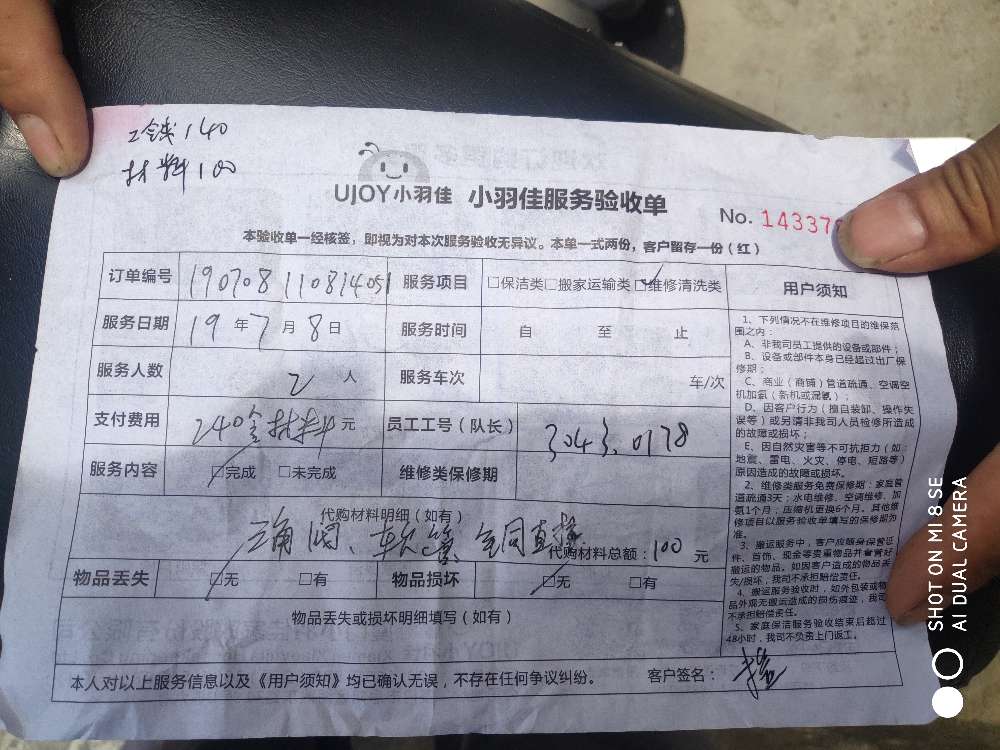 工钱140
材料100
UJOY小羽佳 小羽佳服务验收单
No. 14337
本验收单一经核签，即视为对本次服务验收无异议。本单一式两份，客户留存一份（红）
订单编号 190708110814051 服务项目 □保洁类□搬家运输类□维修清洗类
服务日期 19年7月8日 服务时间 自 至 止
服务人数 2人 服务车次 车/次
支付费用 240含材料元 员工工号（队长） 3043、0178
服务内容 □完成 □未完成 维修类保修期
代购材料明细（如有）
三角阀、软管、全同直接
代购材料总额：100元
物品丢失 □无 □有 物品损坏 □无 □有
物品丢失或损坏明细填写（如有）
本人对以上服务信息以及《用户须知》均已确认无误，不存在任何争议纠纷。 客户签名：
用户须知
1、下列情况不在维修项目的维保范
围之内：
A、非我司员工提供的设备或部件；
B、设备或部件本身已经超过出厂保
修期；
C、商业（商铺）管道疏通、空调空
机加氟（新机或漏氟）；
D、因客户行为（擅自装卸、操作失
误等）或另请非我司人员检修所造成
的故障或损坏；
E、因自然灾害等不可抗拒力（如：
地震、雷电、火灾、停电、短路等）
原因造成的故障或损坏。
2、维修类服务免费保修期：家庭管
道疏通3天；水电维修、空调维修、加
氨1个月；压缩机更换6个月。其他维
修项目以服务验收单填写的保修期为
准。
3、搬运服务中，客户应随身保管证
件、首饰、现金等贵重物品并看管好
搬运的物品。如因客户造成的物品丢
失/损坏，我司不承担赔偿责任。
4、搬运服务验收时，如外包装或物
品外观无搬运造成的损伤痕迹，我司
不承担赔偿责任。
5、家庭保洁服务验收结束后超过
48小时，我司不负责上门返工。
SHOT ON MI 8 SE
AI DUAL CAMERA